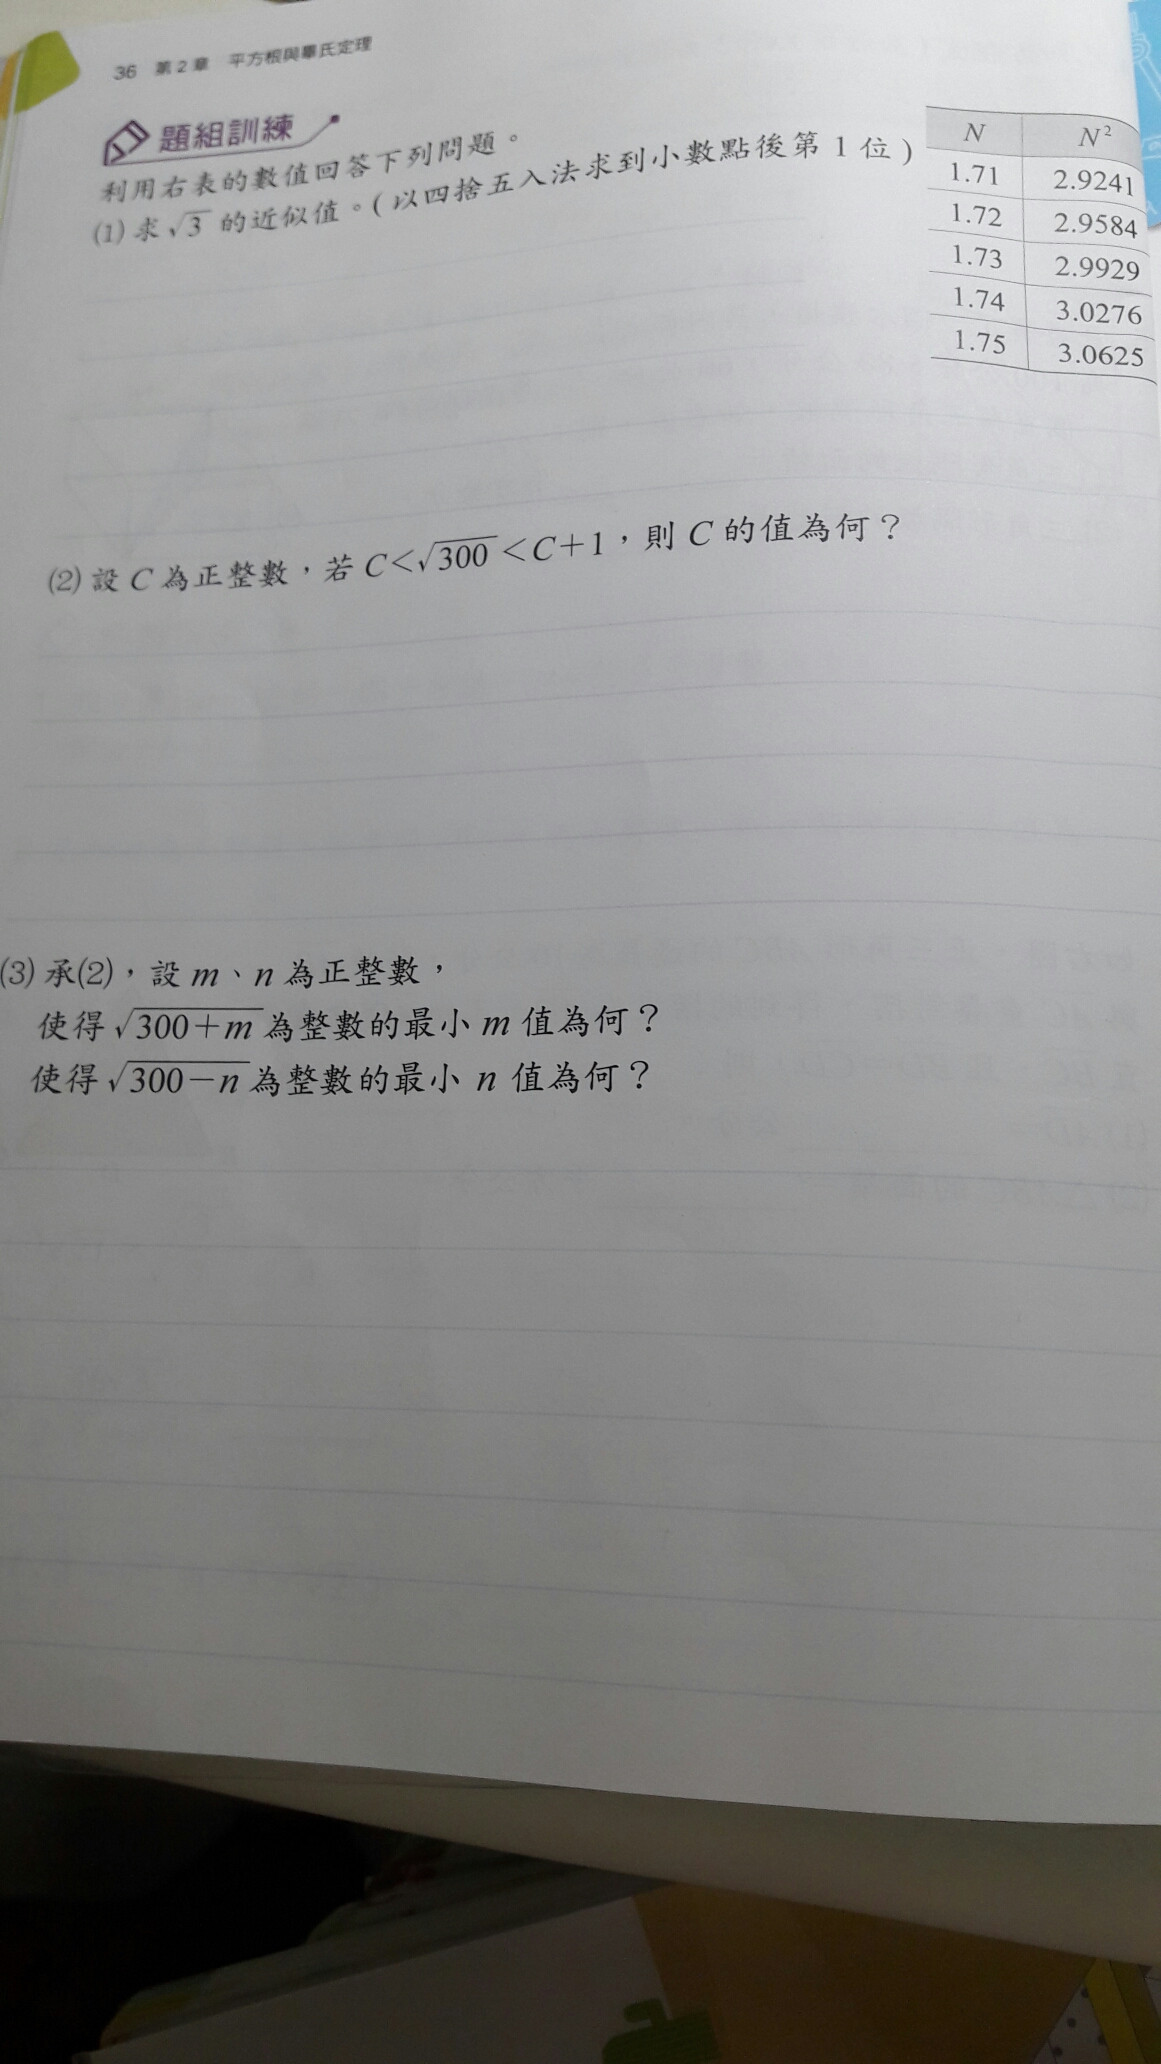 36 第2章 平方根與畢氏定理
題組訓練
利用右表的數值回答下列問題。
(1) 求 √3 的近似值。( 以四捨五入法求到小數點後第 1 位 )
N N²
1.71 2.9241
1.72 2.9584
1.73 2.9929
1.74 3.0276
1.75 3.0625
(2) 設 C 為正整數，若 C<√300<C+1，則 C 的值為何？
(3) 承(2)，設 m、n 為正整數，
使得 √300+m 為整數的最小 m 值為何？
使得 √300−n 為整數的最小 n 值為何？